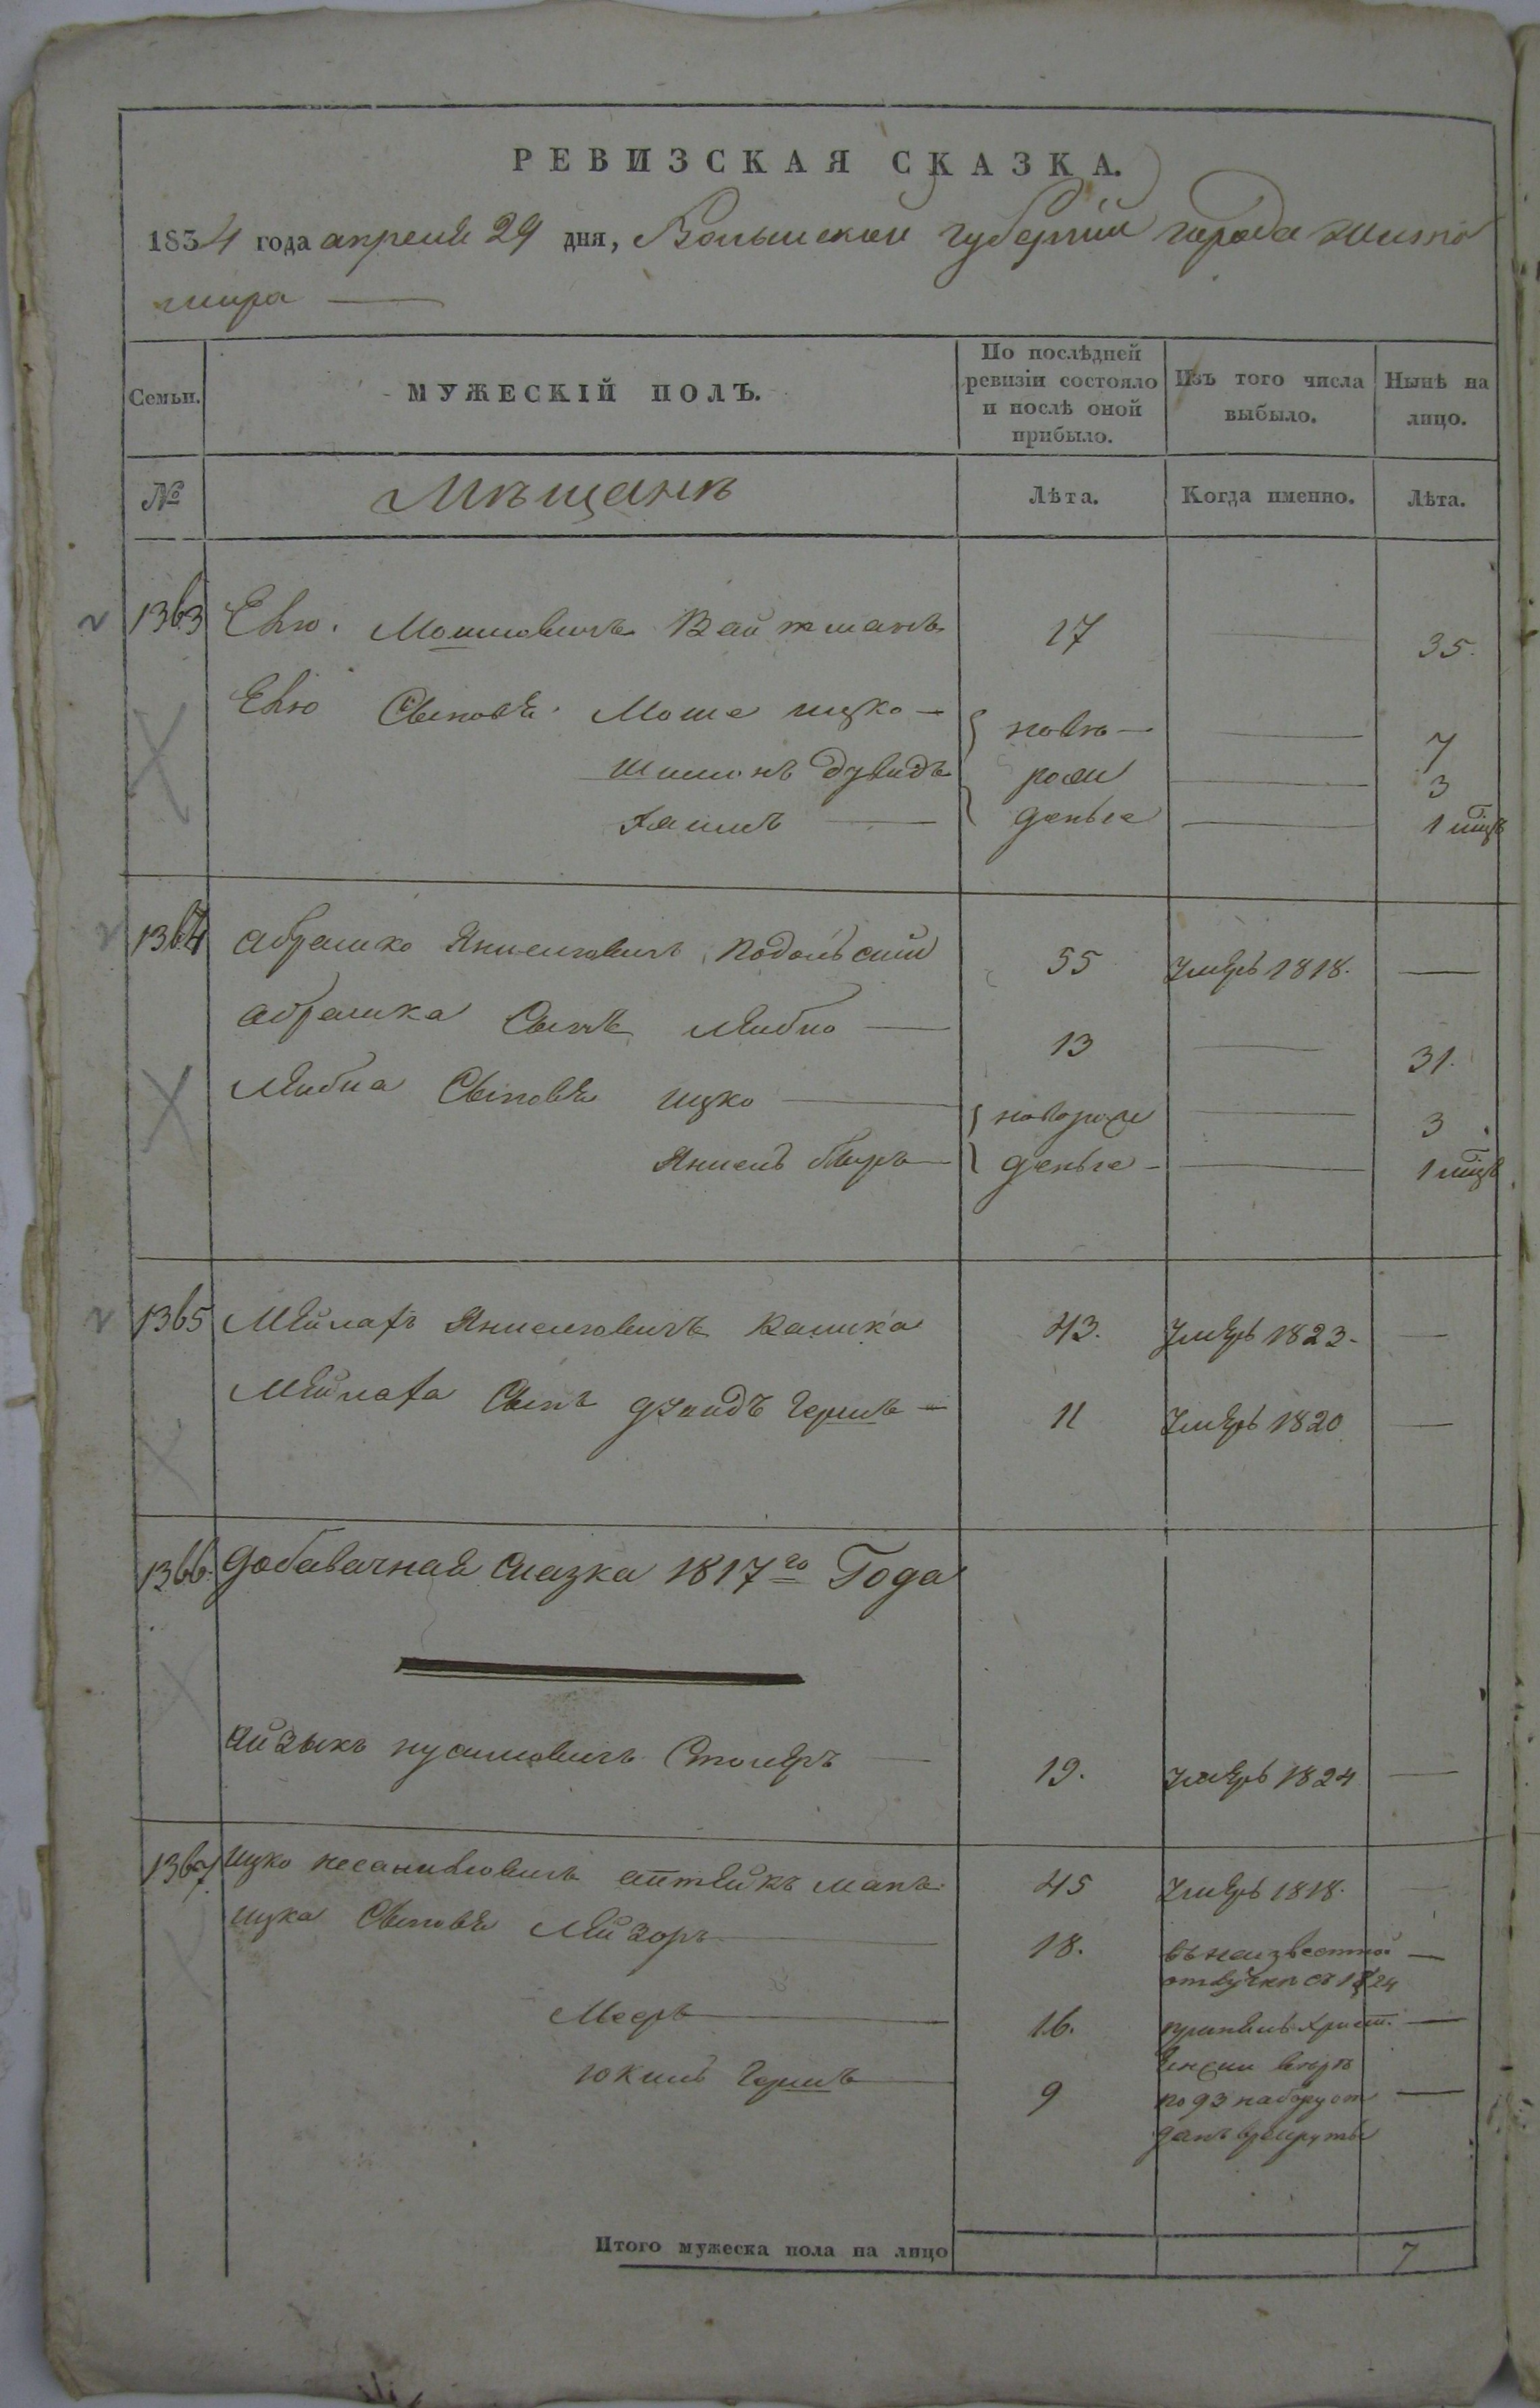 РЕВИЗСКАЯ СКАЗКА.
1834 года апреля 29 дня, Волынской губернии города Жито
мира
Семьи. МУЖЕСКІЙ ПОЛЪ. По послѣдней ревизіи состояло и послѣ оной прибыло. Изъ того числа выбыло. Нынѣ на лицо.
№ Мѣщанѣ Лѣта. Когда именно. Лѣта.
1363 Мошковичъ Вайтманъ 17 35.
Сыновья Мошe ицко ново 7
Шимонъ Дувидъ рож 3
Хаимъ деные 1 мѣц
1364 Абрамко Янкелiовичъ Подольский 55 умеръ 1818.
Абрамка Сынъ Лейбко 13 31.
Лейбка Сыновья ицко новорож 3
Янкель деные 1 мѣц
1365 Мейлахъ Янкелiовичъ 43. умеръ 1823
Мейлаха Сынъ Дувидъ Гершъ 11 умеръ 1820
1366. Добавачная Сказка 1817го Года
Айзыкъ Столяръ 19. умеръ 1824
1367. ицко аптейкъманъ 45 умеръ 1818.
ицка Сыновья Лейзоръ 18. въ неизвестной
отлучки съ 1824
Мееръ 16. принялъ христ.
Гершъ 9 по 93 набору от
данъ врекруты
Итого мужеска пола на лицо 7